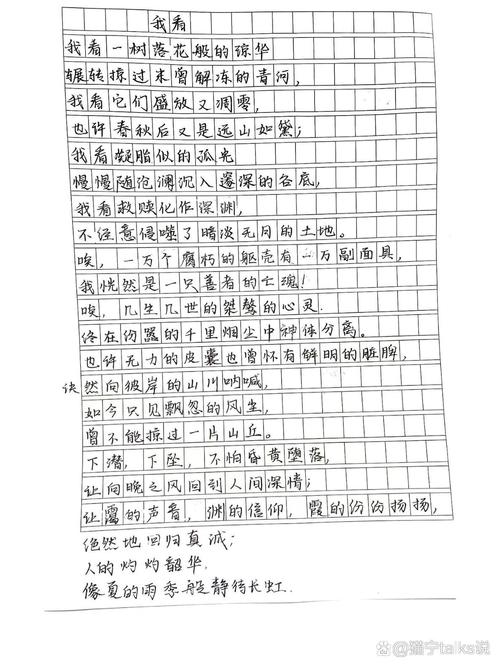 我看
我看一树落花般的凉华
辗转掠过未曾解冻的青河,
我看它们盛放又凋零,
也许春秋后又是远山如黛;
我看凝脂似的孤光
慢慢随沧澜沉入邃深的谷底,
我看救赎化作深渊,
不经意侵噬了暗淡无月的土地。
唉,一万个腐朽的躯壳有一万副面具,
我恍然是一只善者的亡魂!
唉,几生几世的桀骜的心灵
终在纷嚣的千里烟尘中神体分离。
也许无力的皮囊也曾怀有鲜明的脏脾,
诀然向彼岸的山川呐喊,
如今只见飘忽的风尘,
曾不能掠过一片山丘。
下潜,下坠,不怕昏黄堕落,
让向晚之风回到人间深情;
让霭的声音,渊的信仰,霞的纷纷扬扬,
绝然地回归真诚;
人的灼灼韶华
像夏的雨季般静待长虹.
猫宁talks说